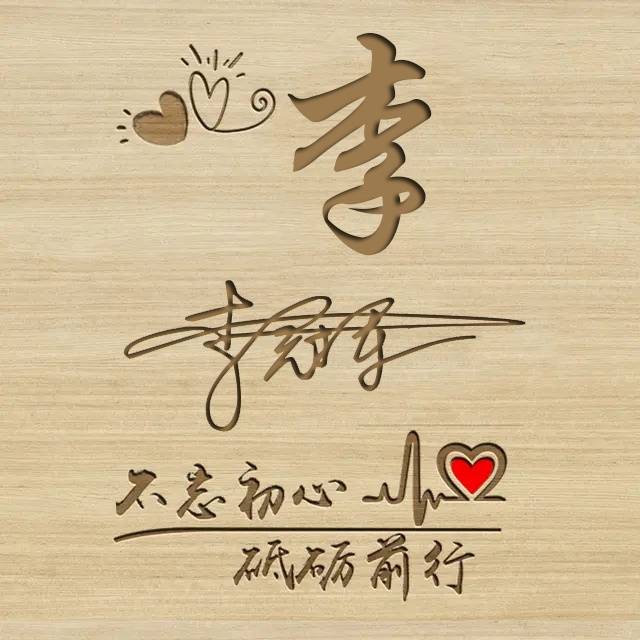 李
李冠军
不忘初心
砥砺前行